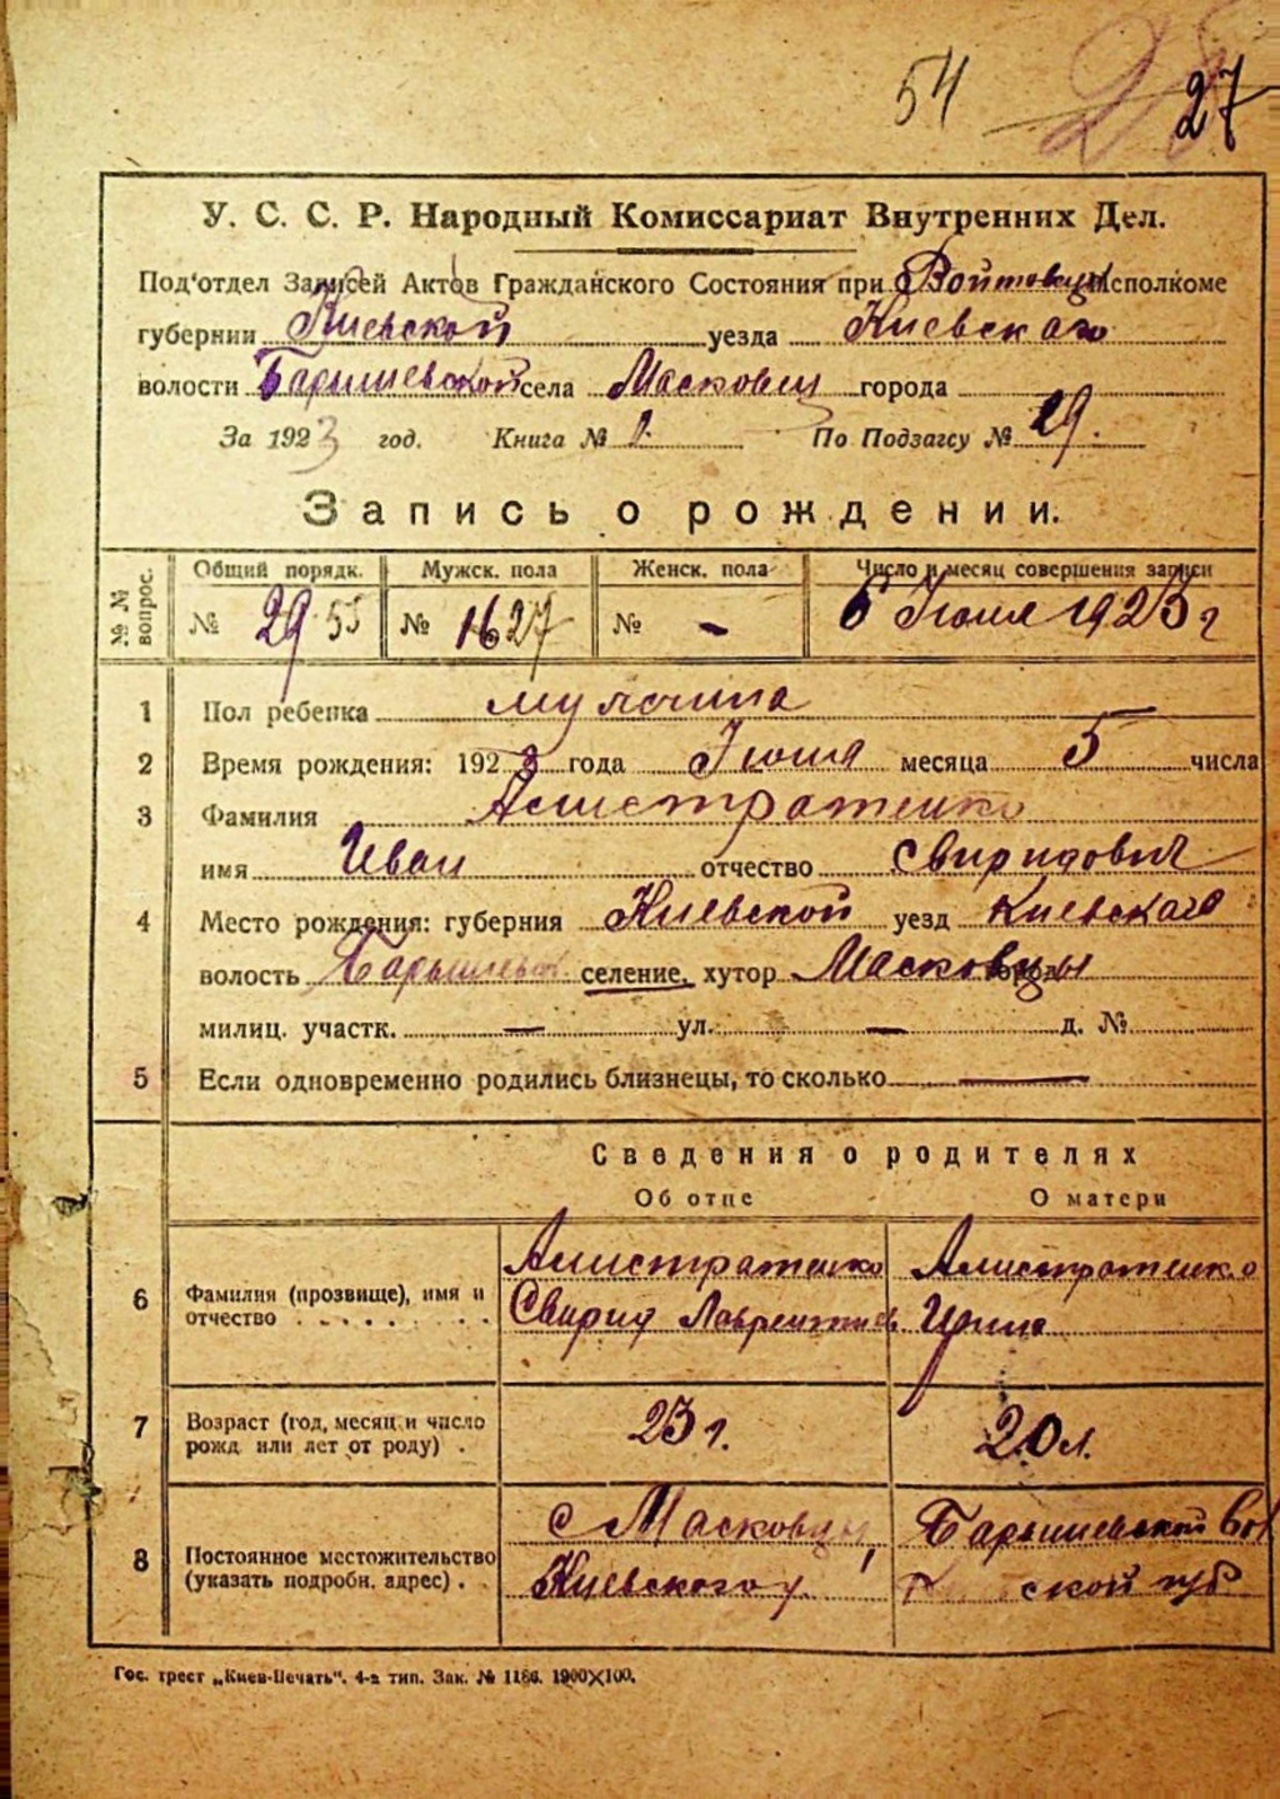 54 27
У. С. С. Р. Народный Комиссариат Внутренних Дел.
Под'отдел Записей Актов Гражданского Состояния при Войтовец Исполкоме
губернии Киевской уезда Киевскаго
волости Барышевской села Масковец города
За 1923 год. Книга № 1. По Подзагсу № 29.
Запись о рождении.
№ № вопрос. Общий порядк. Мужск. пола Женск. пола Число и месяц совершения записи
№ 29 55 № 16 27 № - 6 Июня 1923 г
1 Пол ребенка мужчина
2 Время рождения: 1923 года Июня месяца 5 числа
3 Фамилия Алистратенко
имя Иван отчество Свиридович
4 Место рождения: губерния Киевской уезд Киевскаго
волость Барышевск. селение, хутор Масковцы город
милиц. участк. — ул. — д. №
5 Если одновременно родились близнецы, то сколько —
Сведения о родителях
Об отце О матери
6 Фамилия (прозвище), имя и отчество Алистратенко Свирид Лаврентиев Алистратенко Ирина
7 Возраст (год, месяц и число рожд или лет от роду) . 23 г. 20 л.
8 Постоянное местожительство (указать подробн. адрес) . с Масковцы, Киевского у. Барышевской вол ской губ
Гос. трест „Киев-Печать“. 4-я тип. Зак. № 1186. 1900×100.